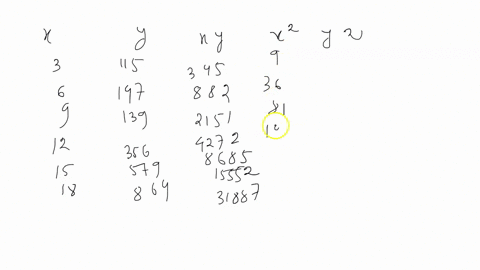 x y xy x² y 2
3 115 345 9
6 147 882 36
9 139 2151 81
12 356 4272
15 579 8685
18 864 15552
31887